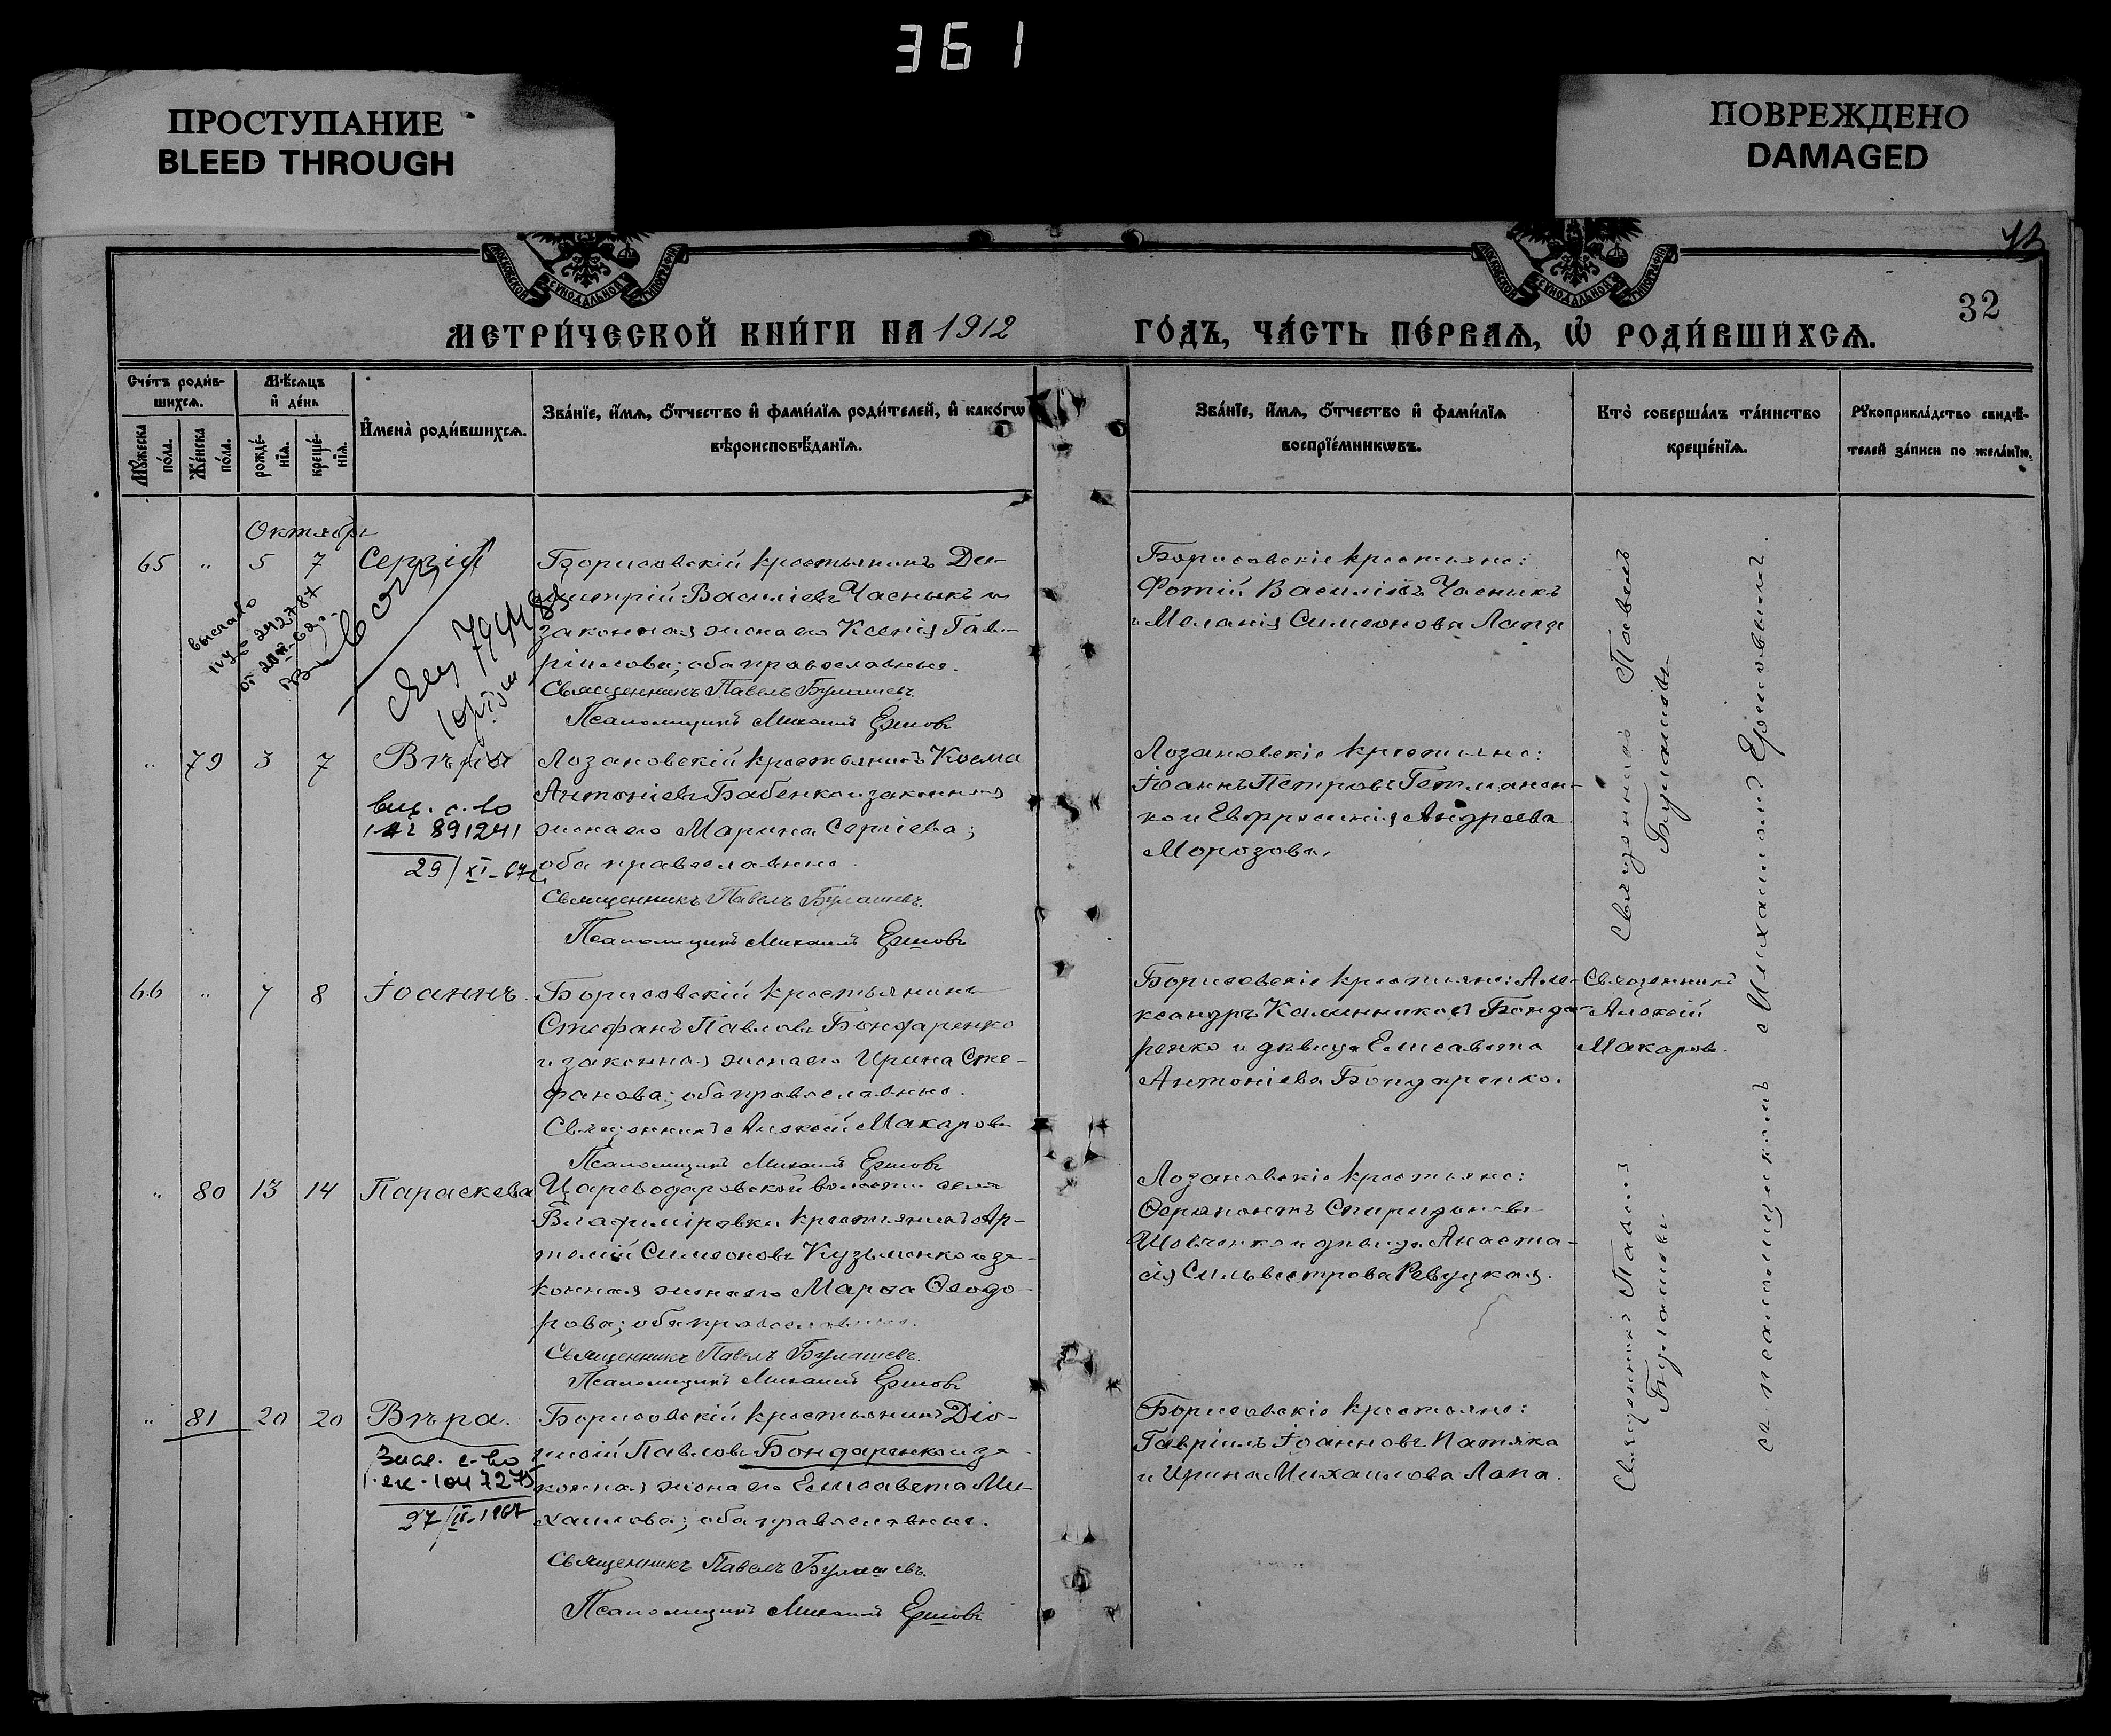 361
ПРОСТУПАНИЕ
BLEED THROUGH
ПОВРЕЖДЕНО
DAMAGED
МОСКОВСКОЙ СѴНОДАЛЬНОЙ ТИПОГРАФІИ
МОСКОВСКОЙ СѴНОДАЛЬНОЙ ТИПОГРАФІИ
32
МЕТРИ́ЧЕСКОЙ КНИ́ГИ НА 1912 ГО́ДЪ, ЧА́СТЬ ПЕ́РВАѦ, Ѡ҆ РОДИ́ВШИХСѦ.
Сче́тъ роди́в-
шихсѧ.
Мѣ́сѧцъ
и҆ де́нь
Мꙋ́жеска
по́ла.
Же́нска
по́ла.
рожде́-
нїѧ.
креще́-
нїѧ.
И҆мена̀ роди́вшихсѧ.
Зва́нїе, и҆́мѧ, ѻ҆́тчество и҆ фами́лїѧ роди́телей, и҆ како́гѡ
вѣроисповѣ́данїѧ.
Зва́нїе, и҆́мѧ, ѻ҆́тчество и҆ фами́лїѧ
воспрїе́мникѡвъ.
Кто̀ соверша́лъ та́инство
креще́нїѧ.
Рꙋкоприкла́дство свидѣ́-
телей за́писи по жела́нїю.
Октябрь
65 " 5 7 Сергій
Борисовскій крестьянинъ Ди-
митрій Василіевъ Часныкъ и
законная жена его Ксенія Гав-
ріилова; оба православные.
Священникъ Павелъ Булашевъ.
Псаломщикъ Михаилъ Ершовъ
Борисовскіе крестьяне:
Фотій Василіевъ Часникъ
и Меланія Симеонова Лапа
Священникъ Павелъ
Булашевъ
выслано
" 79 3 7 Вѣра
выд. с-во
891241
29/XI-67
Лозановскій крестьянинъ Косма
Антоніевъ Бабенко и законная
жена его Марина Сергіева;
оба православные.
Священникъ Павелъ Булашевъ.
Псаломщикъ Михаилъ Ершовъ
Лозановскіе крестьяне:
Іоаннъ Петровъ Гетманен-
ко и Евфросинія Андреева
Морозова.
66 " 7 8 Іоаннъ.
Борисовскій крестьянинъ
Стефанъ Павловъ Бондаренко
и законная жена его Ирина Сте-
фанова; оба православные.
Священникъ Алексій Макаровъ
Псаломщикъ Михаилъ Ершовъ
Борисовскіе крестьяне: Але-
ксандръ Калинниковъ Бонда-
ренко и дѣвица Елисавета
Антоніева Бондаренко.
Священникъ
Алексій
Макаровъ.
" 80 13 14 Параскева
Цареводаровской волости села
Владиміровки крестьянинъ Ар-
темій Симеоновъ Кузьменко и за-
конная жена его Марѳа Ѳеодо-
рова; оба православные.
Священникъ Павелъ Булашевъ.
Псаломщикъ Михаилъ Ершовъ
Лозановскіе крестьяне:
Ѳерапонтъ Спиридоновъ
Шевченко и дѣвица Анаста-
сія Сильвестрова Ревуцкая.
Священникъ Павелъ
Булашевъ
съ псаломщикомъ Михаиломъ Ершовымъ.
" 81 20 20 Вѣра.
27/II.1967
Борисовскій крестьянинъ Діо-
нисій Павловъ Бондаренко и за-
конная жена его Елисавета Ми-
хаилова; оба православные.
Священникъ Павелъ Булашевъ.
Псаломщикъ Михаилъ Ершовъ
Борисовскіе крестьяне:
Гавріилъ Іоанновъ Патяка
и Ирина Михаилова Лапа.